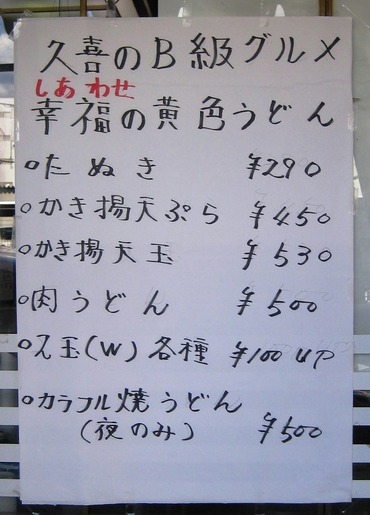 久喜のB級グルメ
しあわせ
幸福の黄色うどん
○たぬき ¥290
○かき揚天ぷら ¥450
○かき揚天玉 ¥530
○肉うどん ¥500
○ス玉(W)各種 ¥100UP
○カラフル焼うどん
(夜のみ) ¥500